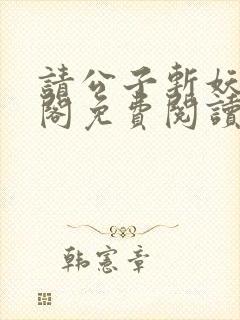 請公子斬妖
閣免費閱讀
韩憲章